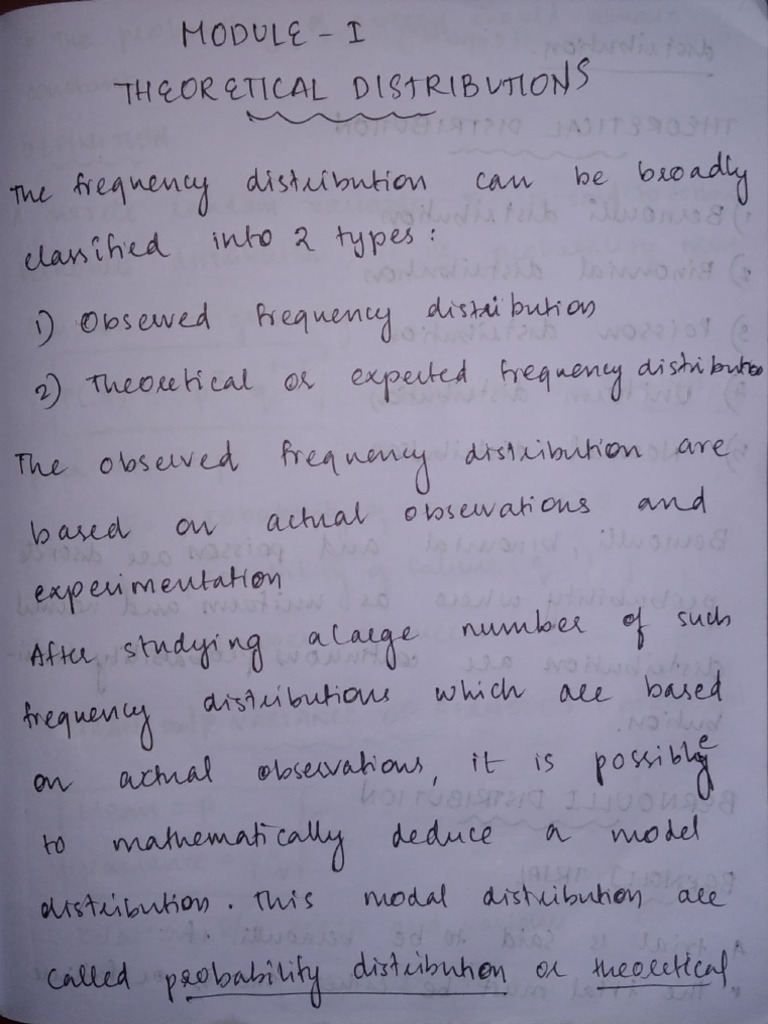 MODULE - I
THEORETICAL DISTRIBUTIONS
The frequency distribution can be broadly
classified into 2 types :
1) Observed frequency distribution
2) Theoretical or expected frequency distribution
The observed frequency distribution are
based on actual observations and
experimentation
After studying a large number of such
frequency distributions which are based
on actual observations, it is possible
to mathematically deduce a model
distribution. This modal distribution are
called probability distribution or theoretical